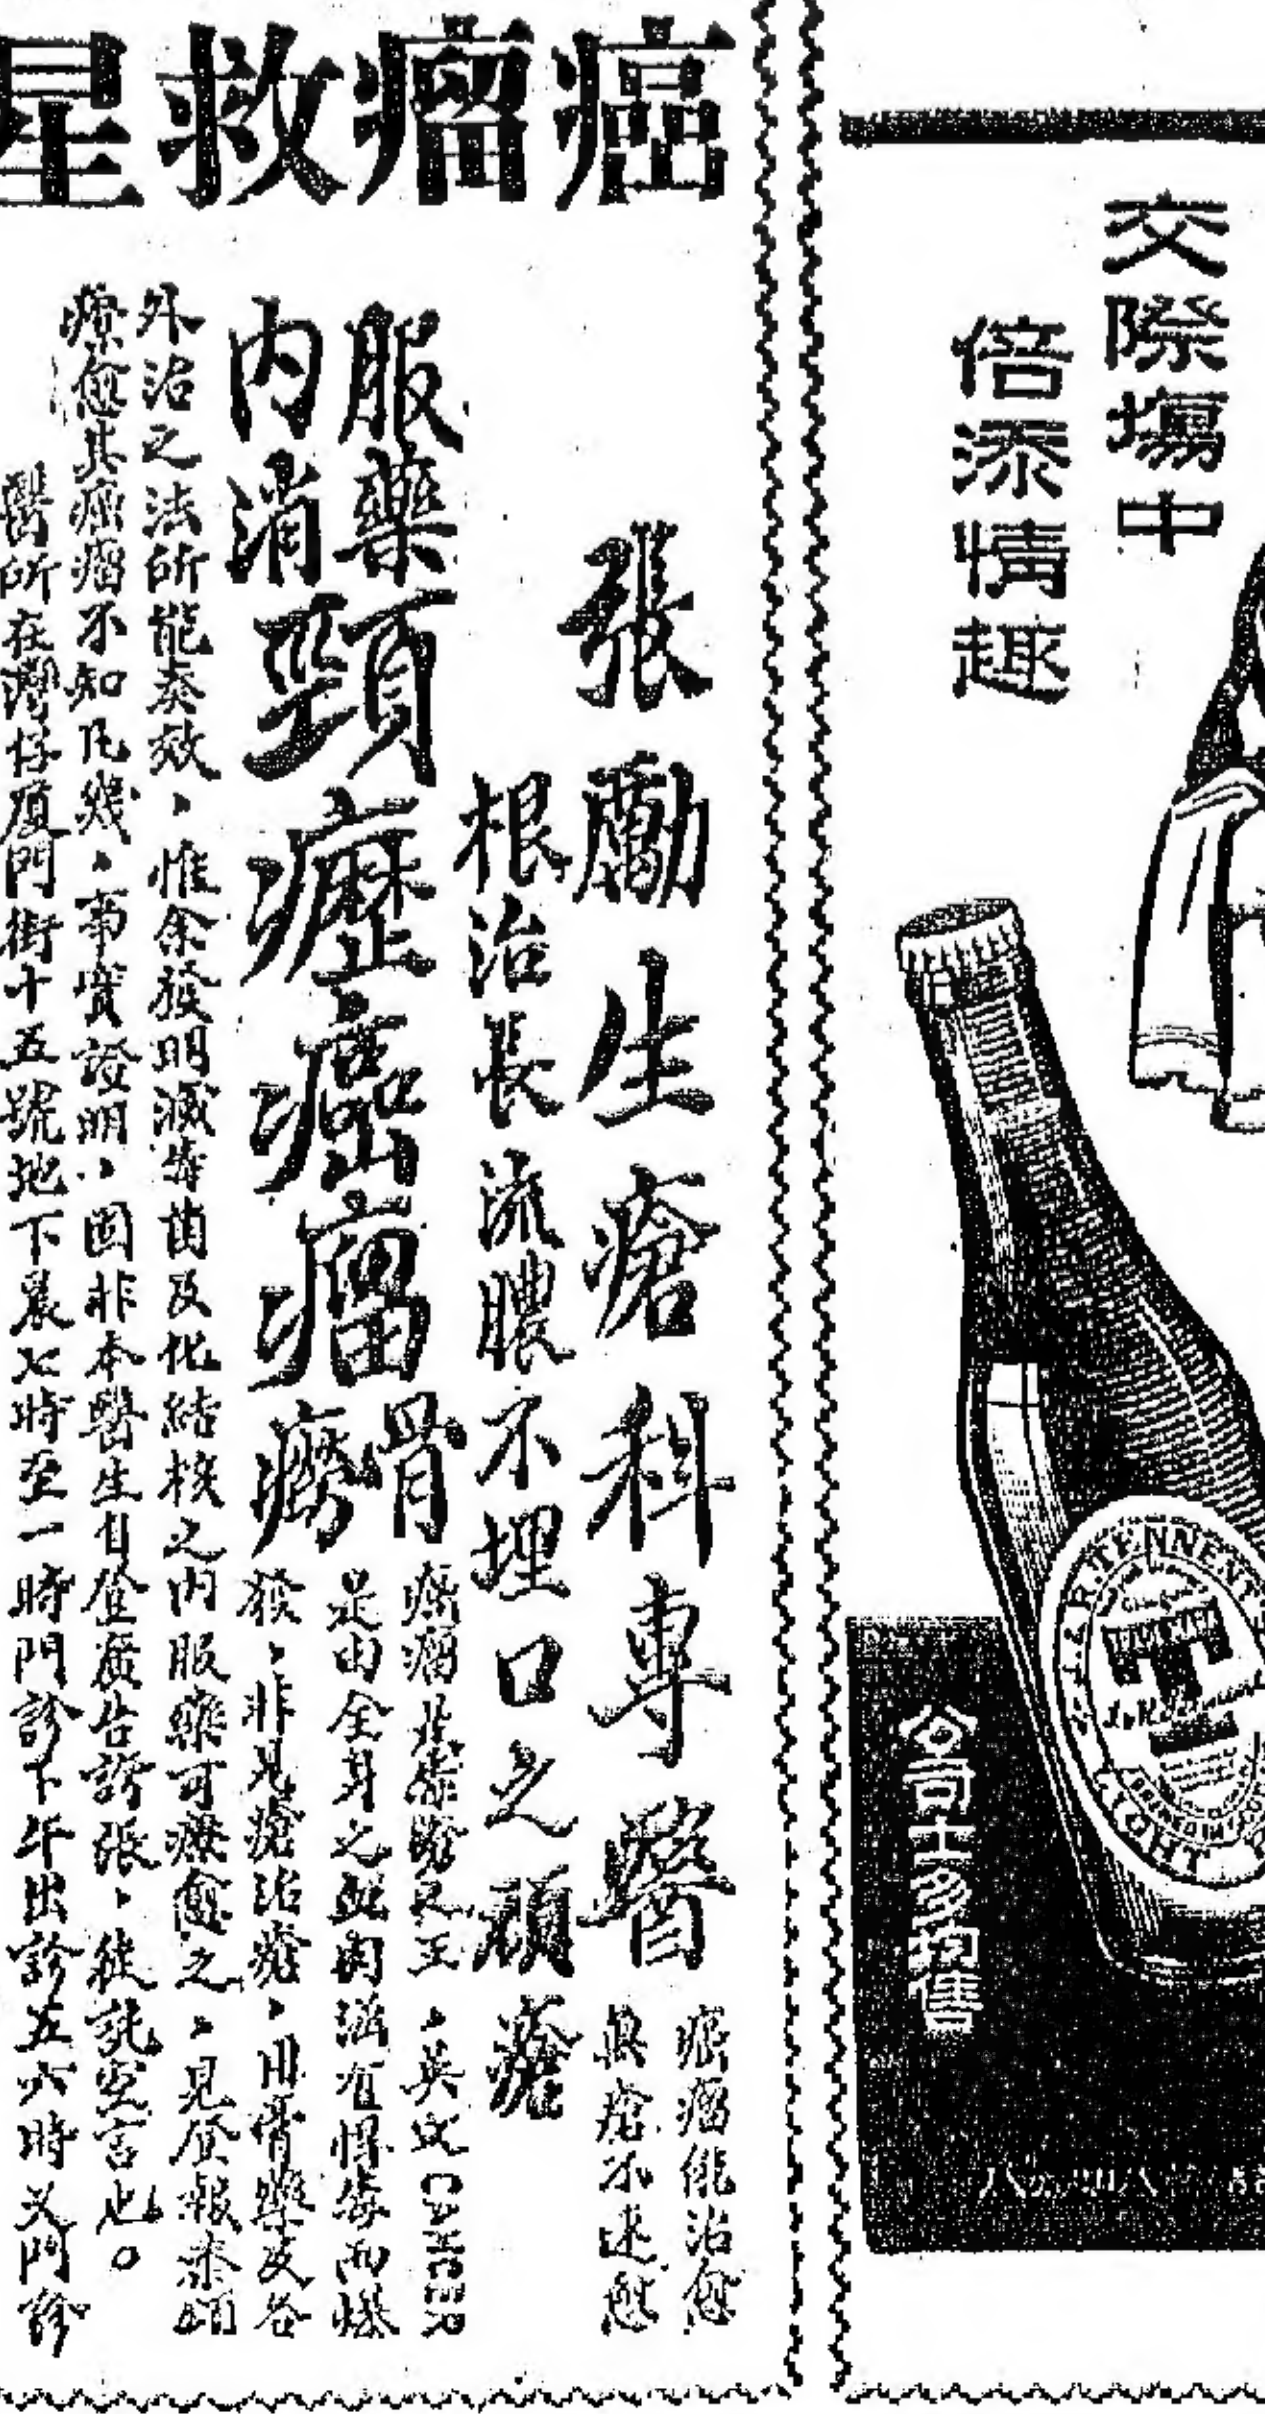 交際場中
倍添情趣
J. & R. TENNENT
各哥士多均售
癌瘤救星
張勵生瘡科專醫
癌瘤能治愈
無瘡不速愈
根治長流膿不埋口之頑瘡
服藥
內消
頸癧癌瘤
骨
癆
癌瘤
瘡之王、英文CANCER
是由全身之血肉滋有惧毒而爆
發、非見瘡治瘡、用膏藥及各
外治之法所能奏效、惟余發明滅毒菌及化結核之內服藥可療愈之、見登報恭頌
療愈其癌瘤不知凡幾、事實證明、固非本醫生自登廣告誇張、徒託空言也。
醫所在灣仔廈門街十五號地下晨七時至一時門診下午出診五六時又門診